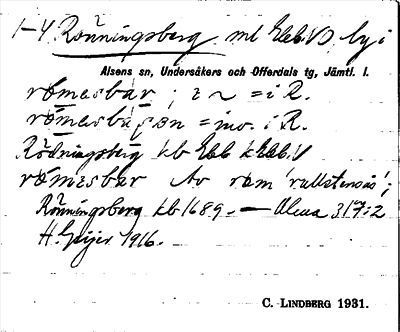 1-4 Rönningsberg ml Ebb. VD by i
Alsens sn, Undersåkers och Offerdals tg, Jämtl. l.
römesbär ; i ~ = i R.
römesbä, sn = inv. i R.
Rödningsberg kb Ebb kEbb.V
römesbär Av rom 'rullstensås';
Rönningsberg kb 1689. — Alsens 317:2
H. Geijer 1916.
C. LINDBERG 1931.